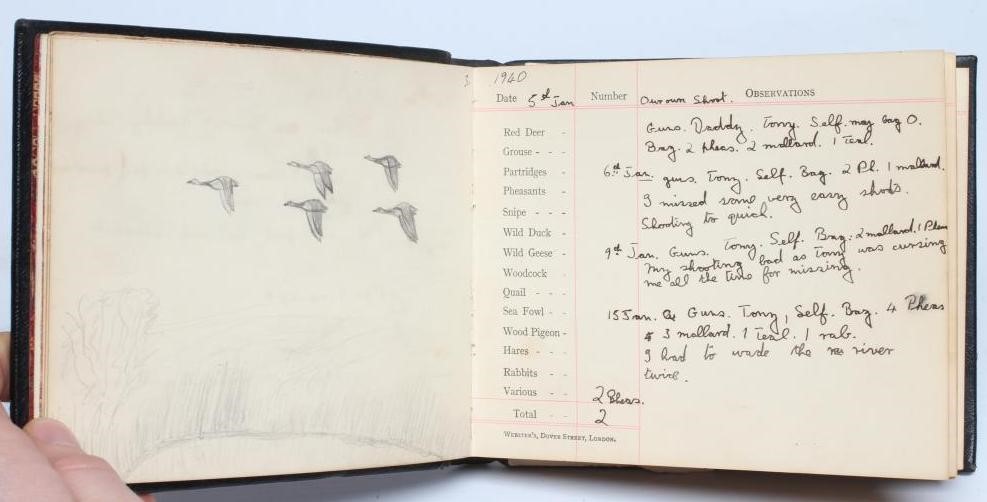 3.
1940
Date 5th Jan Number Our own Shoot. OBSERVATIONS
Red Deer -
Guns. Daddy. Tony. Self. my bag 0.
Grouse - - -
Bag. 2 pheas. 2 mallard. 1 Teal.
Partridges - 6th Jan. guns. Tony. Self. Bag. 2 Ph. 1 mallard.
Pheasants -
I missed some very easy shots.
Snipe - - -
Shooting to quick.
Wild Duck - -
Wild Geese - 9th Jan. Guns. Tony. Self. Bag: 2 mallard. 1 Pheas
My shooting bad as Tony was cursing
Woodcock -
me all the time for missing.
Quail - - -
Sea Fowl - - 15 Jan. Guns. Tony, Self. Bag. 4 Pheas
Wood Pigeon - 3 mallard. 1 Teal. 1 rab.
Hares - - -
I had to wade the river
Rabbits - -
twice.
Various - - 2 Pheas.
Total - - 2
WEBSTER'S, DOVER STREET, LONDON.